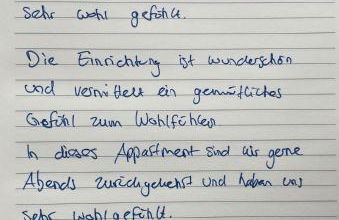 Sehr wohl gefühlt.
Die Einrichtung ist wunderschön
und vermittelt ein gemütliches
Gefühl zum Wohlfühlen
In dieses Appartment sind wir gerne
Abends zurückgekehrt und haben uns
Sehr wohlgefühlt.